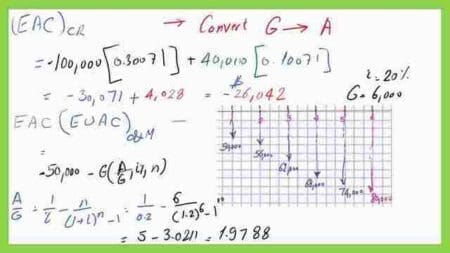 (EAC)CR → Convert G → A
= -100,000 [0.30071] + 40,000 [0.10071]
= -30,071 + 4,028 = -$26,042
i = 20%
G = 6,000
EAC (EUAC)O&M
=
-50,000 - G(A/G, i, n)
50,000 56,000 62,000 68,000 74,000 80,000
A/G = 1/i - n/(1+i)^n - 1 = 1/0.2 - 6/(1.2)^6 - 1
= 5 - 3.0211 = 1.9788